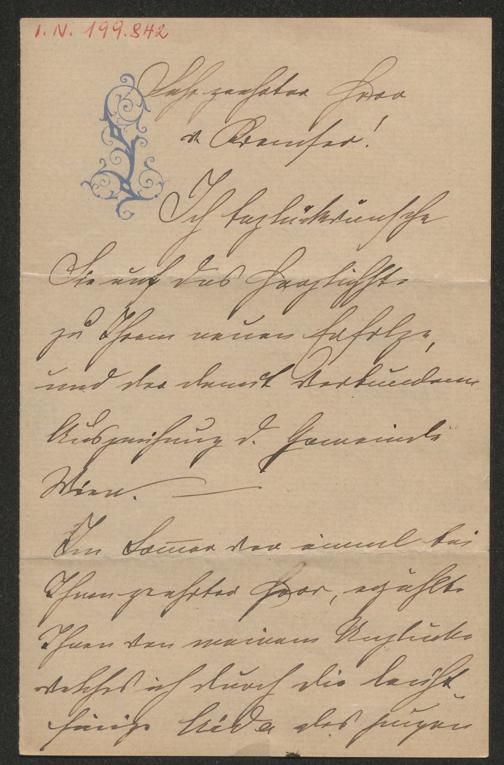 I. N. 199.842
Sehr geehrter Herr
v. Kremser!
Ich beglückwünsche
Sie auf das Herzlichste
zu Ihrem neuen Erfolge,
und der damit verbundenen
Auszeichnung d. Gemeinde
Wien.
Im Sommer war einmal bei
Ihnen geehrter Herr, erzählte
Ihnen von meinem Unglücke
welches ich durch die leicht
des jungen